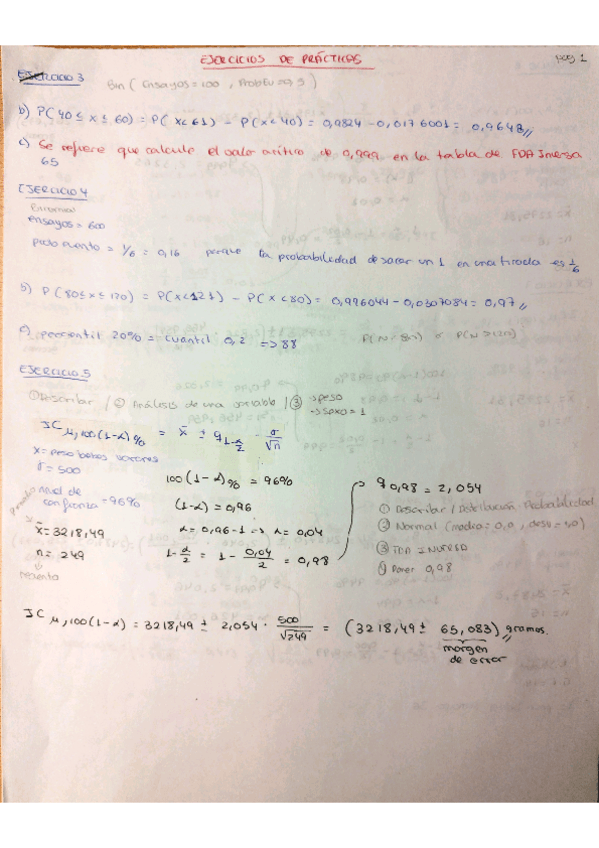 EJERCICIOS DE PRÁCTICAS
pag 1
EJERCICIO 3
Bin ( Ensayos = 100 ,
b) P( 40 ≤ x ≤ 60) = P( x < 61) - P( x < 40) = 0,9824 - 0,0176001 = 0,9648
c) Se refiere que calcule el valor crítico de 0,999 en la tabla de FDA Inversa
65
EJERCICIO 4
ensayos = 600
prob evento = 1/6 = 0,16 porque la probabilidad de sacar un 1 en una tirada es 1/6
b) P ( 80 ≤ x ≤ 120) = P( x < 121) - P( x < 80) = 0,996044 - 0,0307084 = 0,97
c) percentil 20% = cuantil 0,2 => 88
EJERCICIO 5
① Describir / ② Análisis de una variable / ③ → peso
→ sexo = 1
IC μ, 100(1-α)% = x̄ ± q 1-α/2 · σ/√n
x = peso bebes varones
σ = 500
nivel de confianza = 96%
x̄ = 3218,49
n = 249
100(1-α)% = 96%
(1-α) = 0,96
α = 0,96 - 1 => α = 0,04
1 - α/2 = 1 - 0,04/2 = 0,98
q 0,98 = 2,054
① Describir / Distribución Probabilidad
② Normal (media = 0,0 ,
③ INVERSO
Poner 0,98
IC μ, 100(1-α) = 3218,49 ± 2,054 · 500/√249 = (3218,49 ± 65,083) gramos.
margen
de error